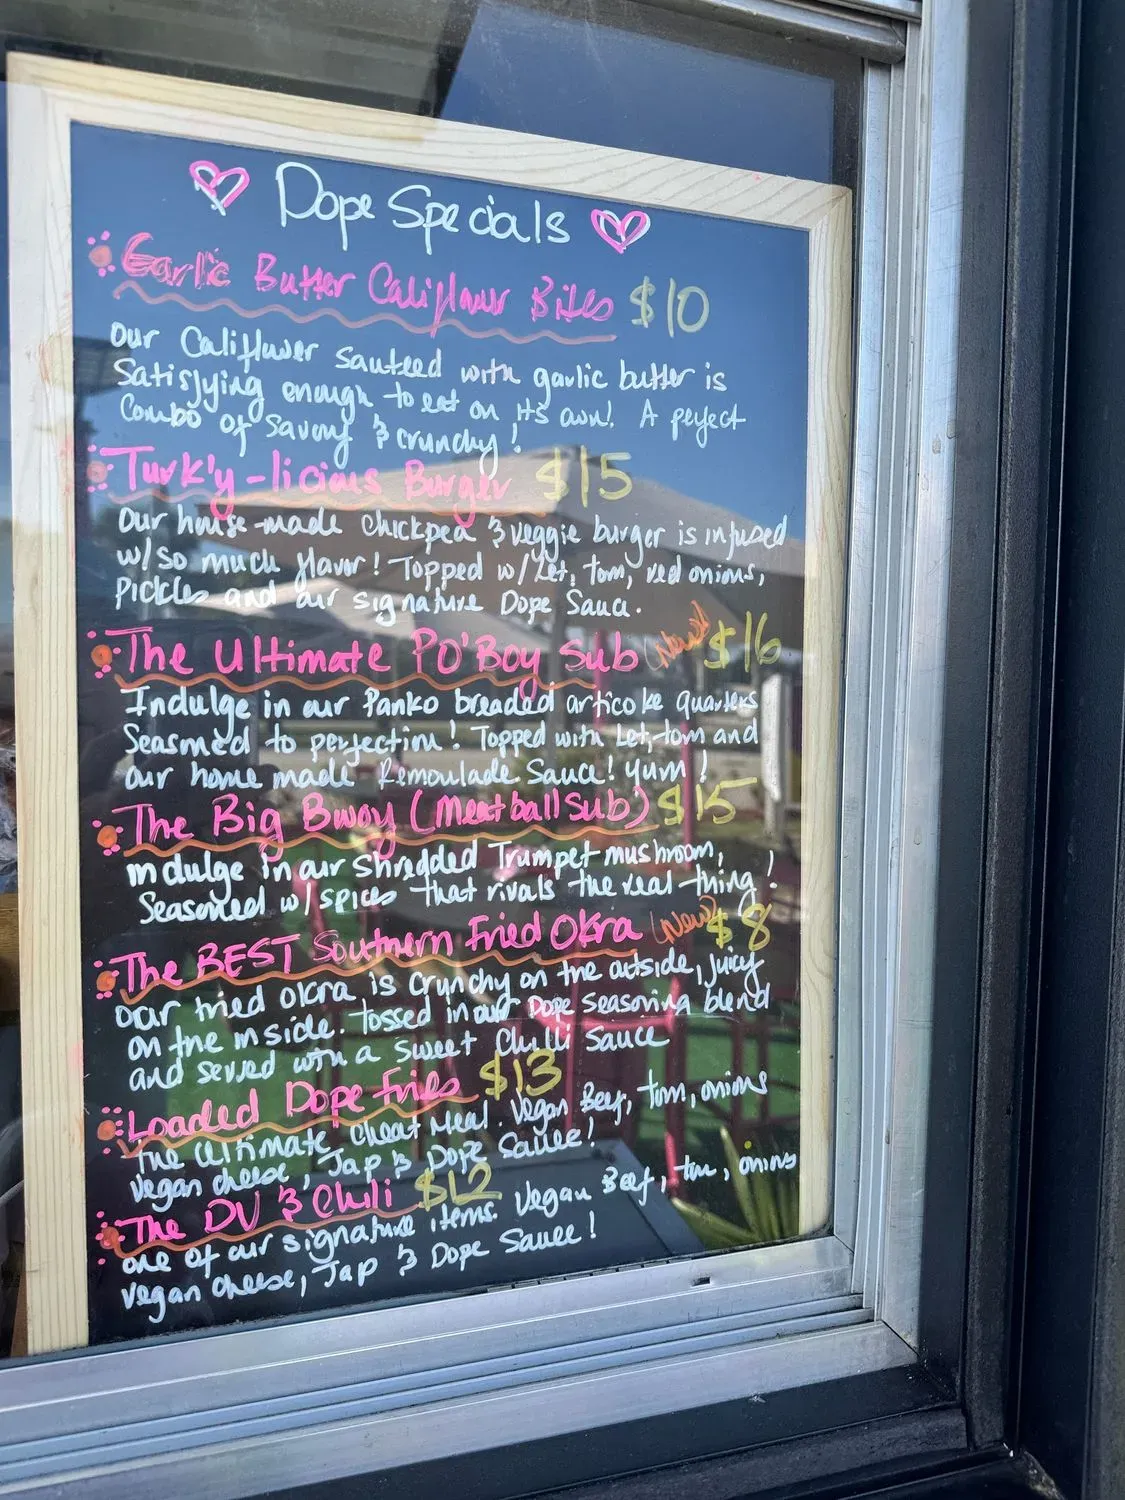 Dope Specials
Garlic Butter Califlower Bites $10
Our Califlower sauteed with garlic butter is
Satisfying enough to eat on its own! A perfect
Combo of Savory & crunchy!
Turk'y-licious Burger $15
Our house-made chickpea & veggie burger is infused
w/so much flavor! Topped w/Let, tom, red onions,
Pickles and our signature Dope Sauce.
The Ultimate PO'Boy Sub (New) $16
Indulge in our Panko breaded articoke quarters
Seasoned to perfection! Topped with Let, tom and
our home made Remoulade Sauce! Yum!
The Big Bwoy (Meatball Sub) $15
Indulge in our Shredded Trumpet mushroom,
Seasoned w/ spices that rivals the real-thing!
The BEST Southern Fried Okra (New) $8
Our fried okra is crunchy on the outside, juicy
on the inside. Tossed in our Dope seasoning blend
and served with a sweet Chilli Sauce
Loaded Dope Fries $13
The Ultimate Cheat Meal. Vegan Beef, tom, onions
vegan cheese, Jap & Dope Sauce!
The DV & Chili $12
one of our signature items. Vegan Beef, tom, onions
vegan cheese, Jap & Dope Sauce!